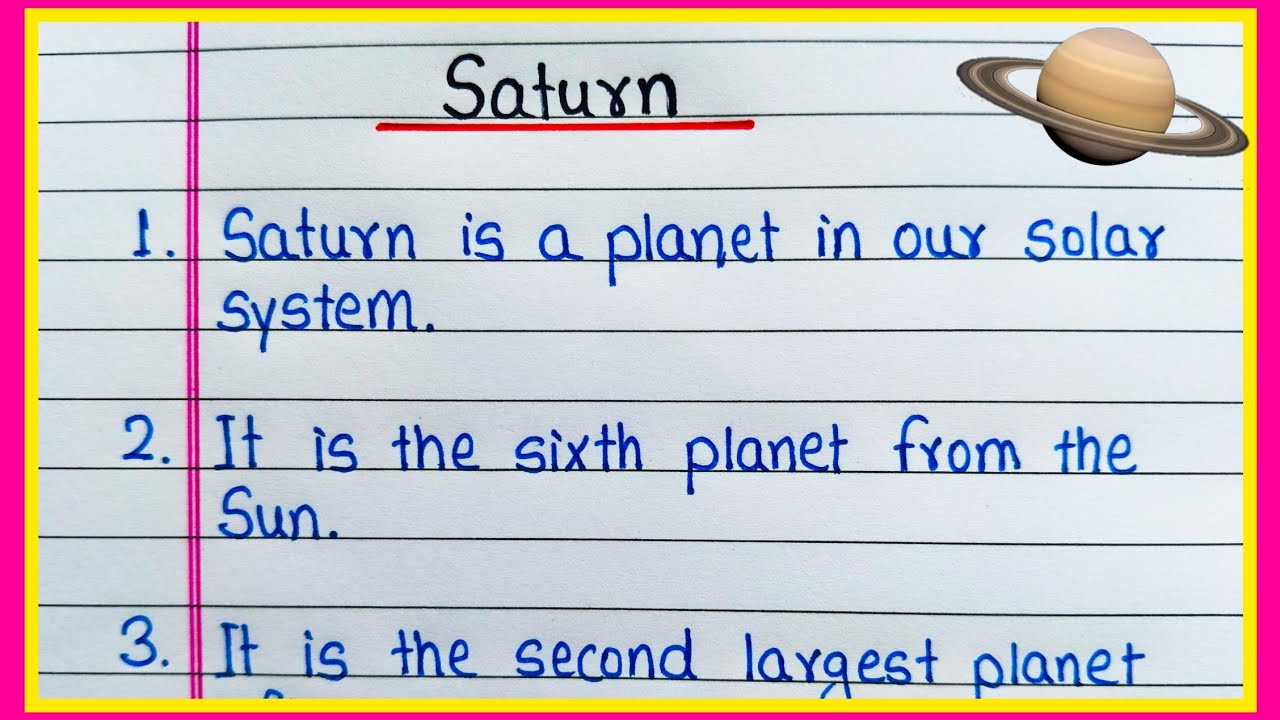 Saturn
1. Saturn is a planet in our solar
system.
2. It is the sixth planet from the
Sun.
3. It is the second largest planet